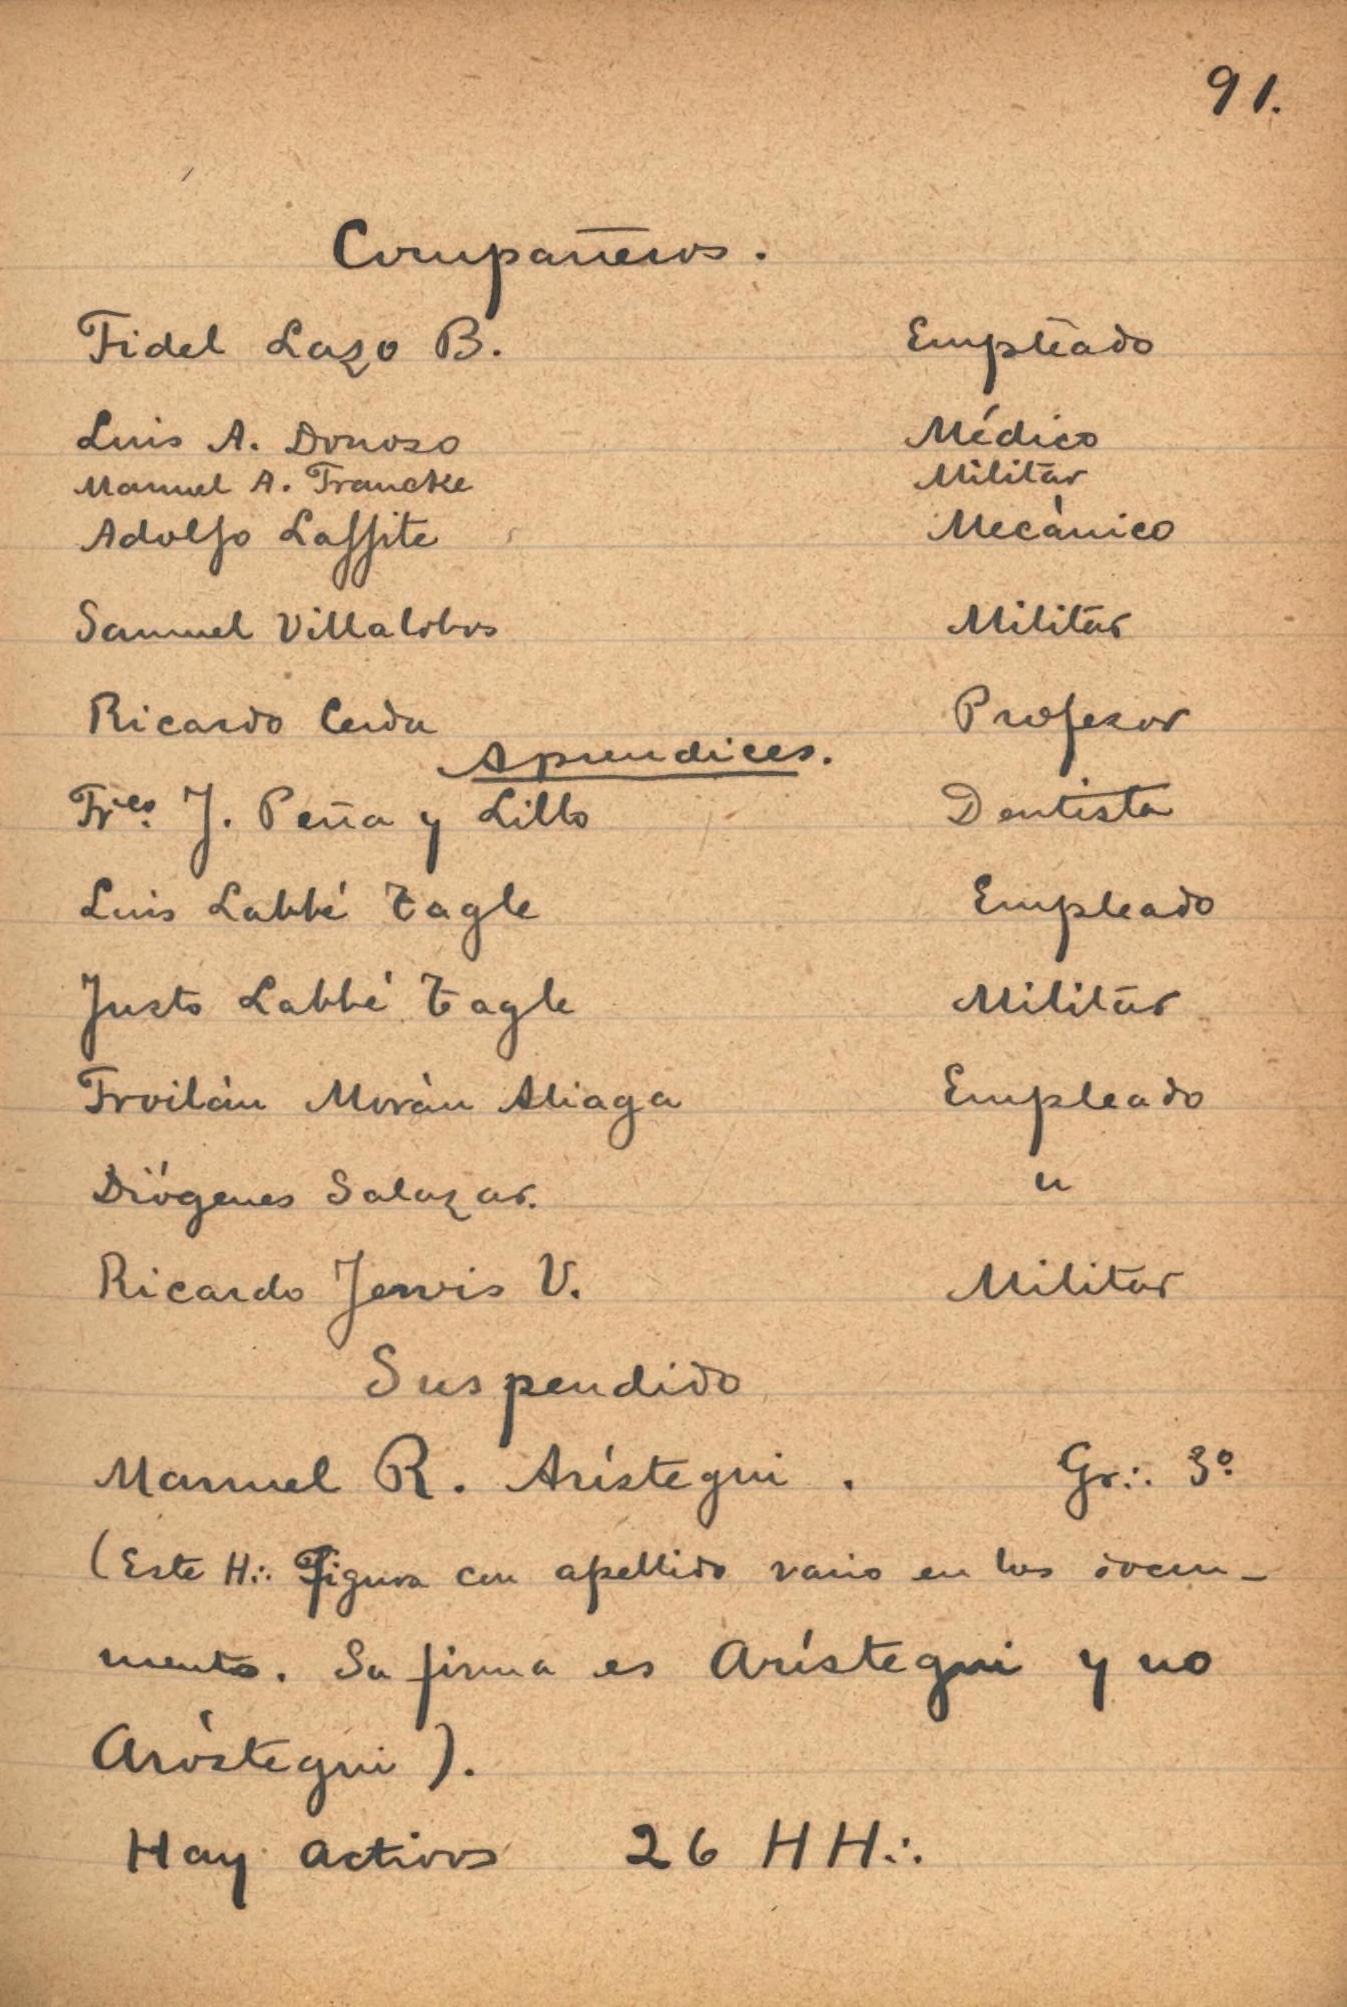 91.
Compañeros.
Fidel Lazo B. Empleado
Luis A. Donoso Médico
Manuel A. Francke Militar
Adolfo Laffite Mecánico
Samuel Villalobos Militar
Ricardo Cerda Profesor
Aprendices.
Frco. J. Peña y Lillo Dentista
Luis Labbé Tagle Empleado
Justo Labbé Tagle Militar
Froilán Morán Aliaga Empleado
Diógenes Salazar. "
Ricardo Jervis V. Militar
Suspendido
Manuel R. Arístegui. Gr∴ 3º
(Este H∴ Figura con apellido vario en los docu-
mento. Su firma es Arístegui y no
Aróstegui).
Hay activos 26 HH∴